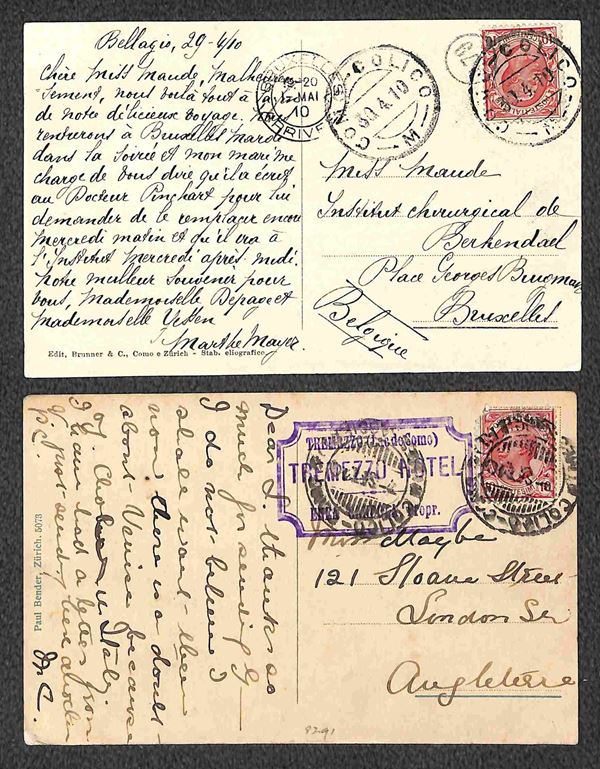 Bellagio, 29-4/10
Chère Miss Maude, Malheureu-
sement, nous voilà tout à
de notre délicieux voyage,
rentrerons à Bruxelles Mardi
dans la soirée et mon mari me
charge de vous dire qu'il a écrit
au Docteur Pinchart pour lui
demander de le remplacer encore
Mercredi matin et qu'il ira à
l'Institut Mercredi après midi.
Notre meilleur souvenir pour
vous, Mademoiselle Depage et
Mademoiselle
Marthe Mayer
Edit. Brunner & C., Como e Zürich - Stab. eliografico
BRUXELLES
-20
1 MAI
10
ARRIVE
COLICO
30.4.10
M
79
COLICO
Miss Maude
Institut chirurgical de
Berkendael
Place Georges Brugman
Bruxelles
Belgique
Dear S. thanks so
much for sending
I do not believe I
shall want them
now, there is a doubt
about Venice because
of Cholera in Italy.
I have had a letter from
Paul Bender, Zürich. 5073
TREMEZZO (Lago di Como)
TREMEZZO HOTEL
Propr.
COLICO
COLICO
Miss Maybe
121 Sloane Street
London SW
Angleterre
8291